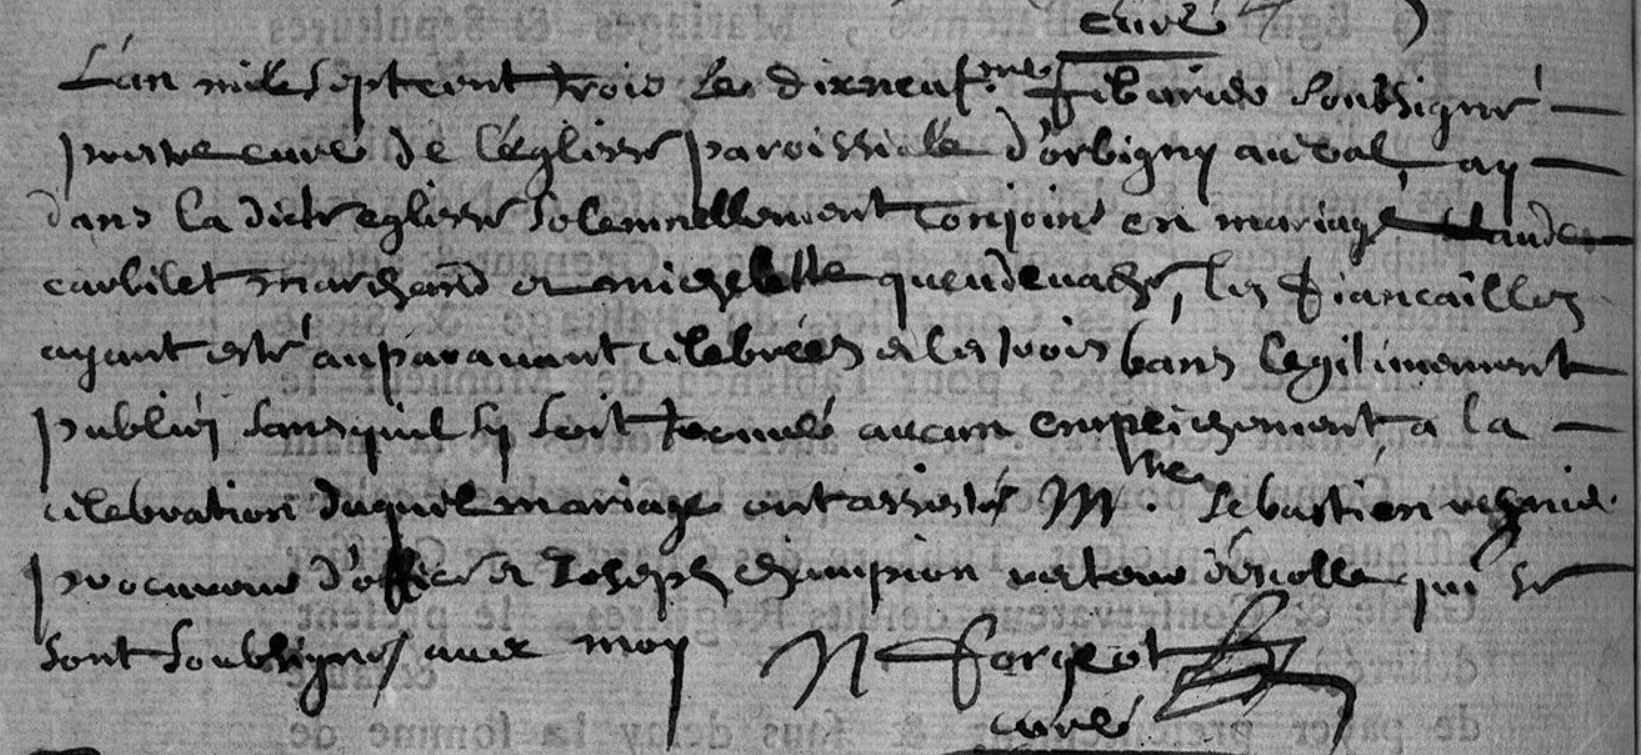 curé
L'an mille sept cent trois le dixneuf.me febvrier soubsigné
prestre curé de l'eglisse paroissialle d'orbigny au val ay
dans la dicte eglisse solemnellement conjoint en mariage Claude
carbilet marchand et michelette queudevache, les fiancailles
ayant esté auparavant celebrées et les trois bans legitimement
publiés sans quil sy soit trouvé aucun empeichement a la
celebration duquel mariage ont assistés M.tre Sebastien regnier
procureur d'office et Joseph champion recteur d'escolle qui se
sont soubsignes avec moy N forgeot
curé